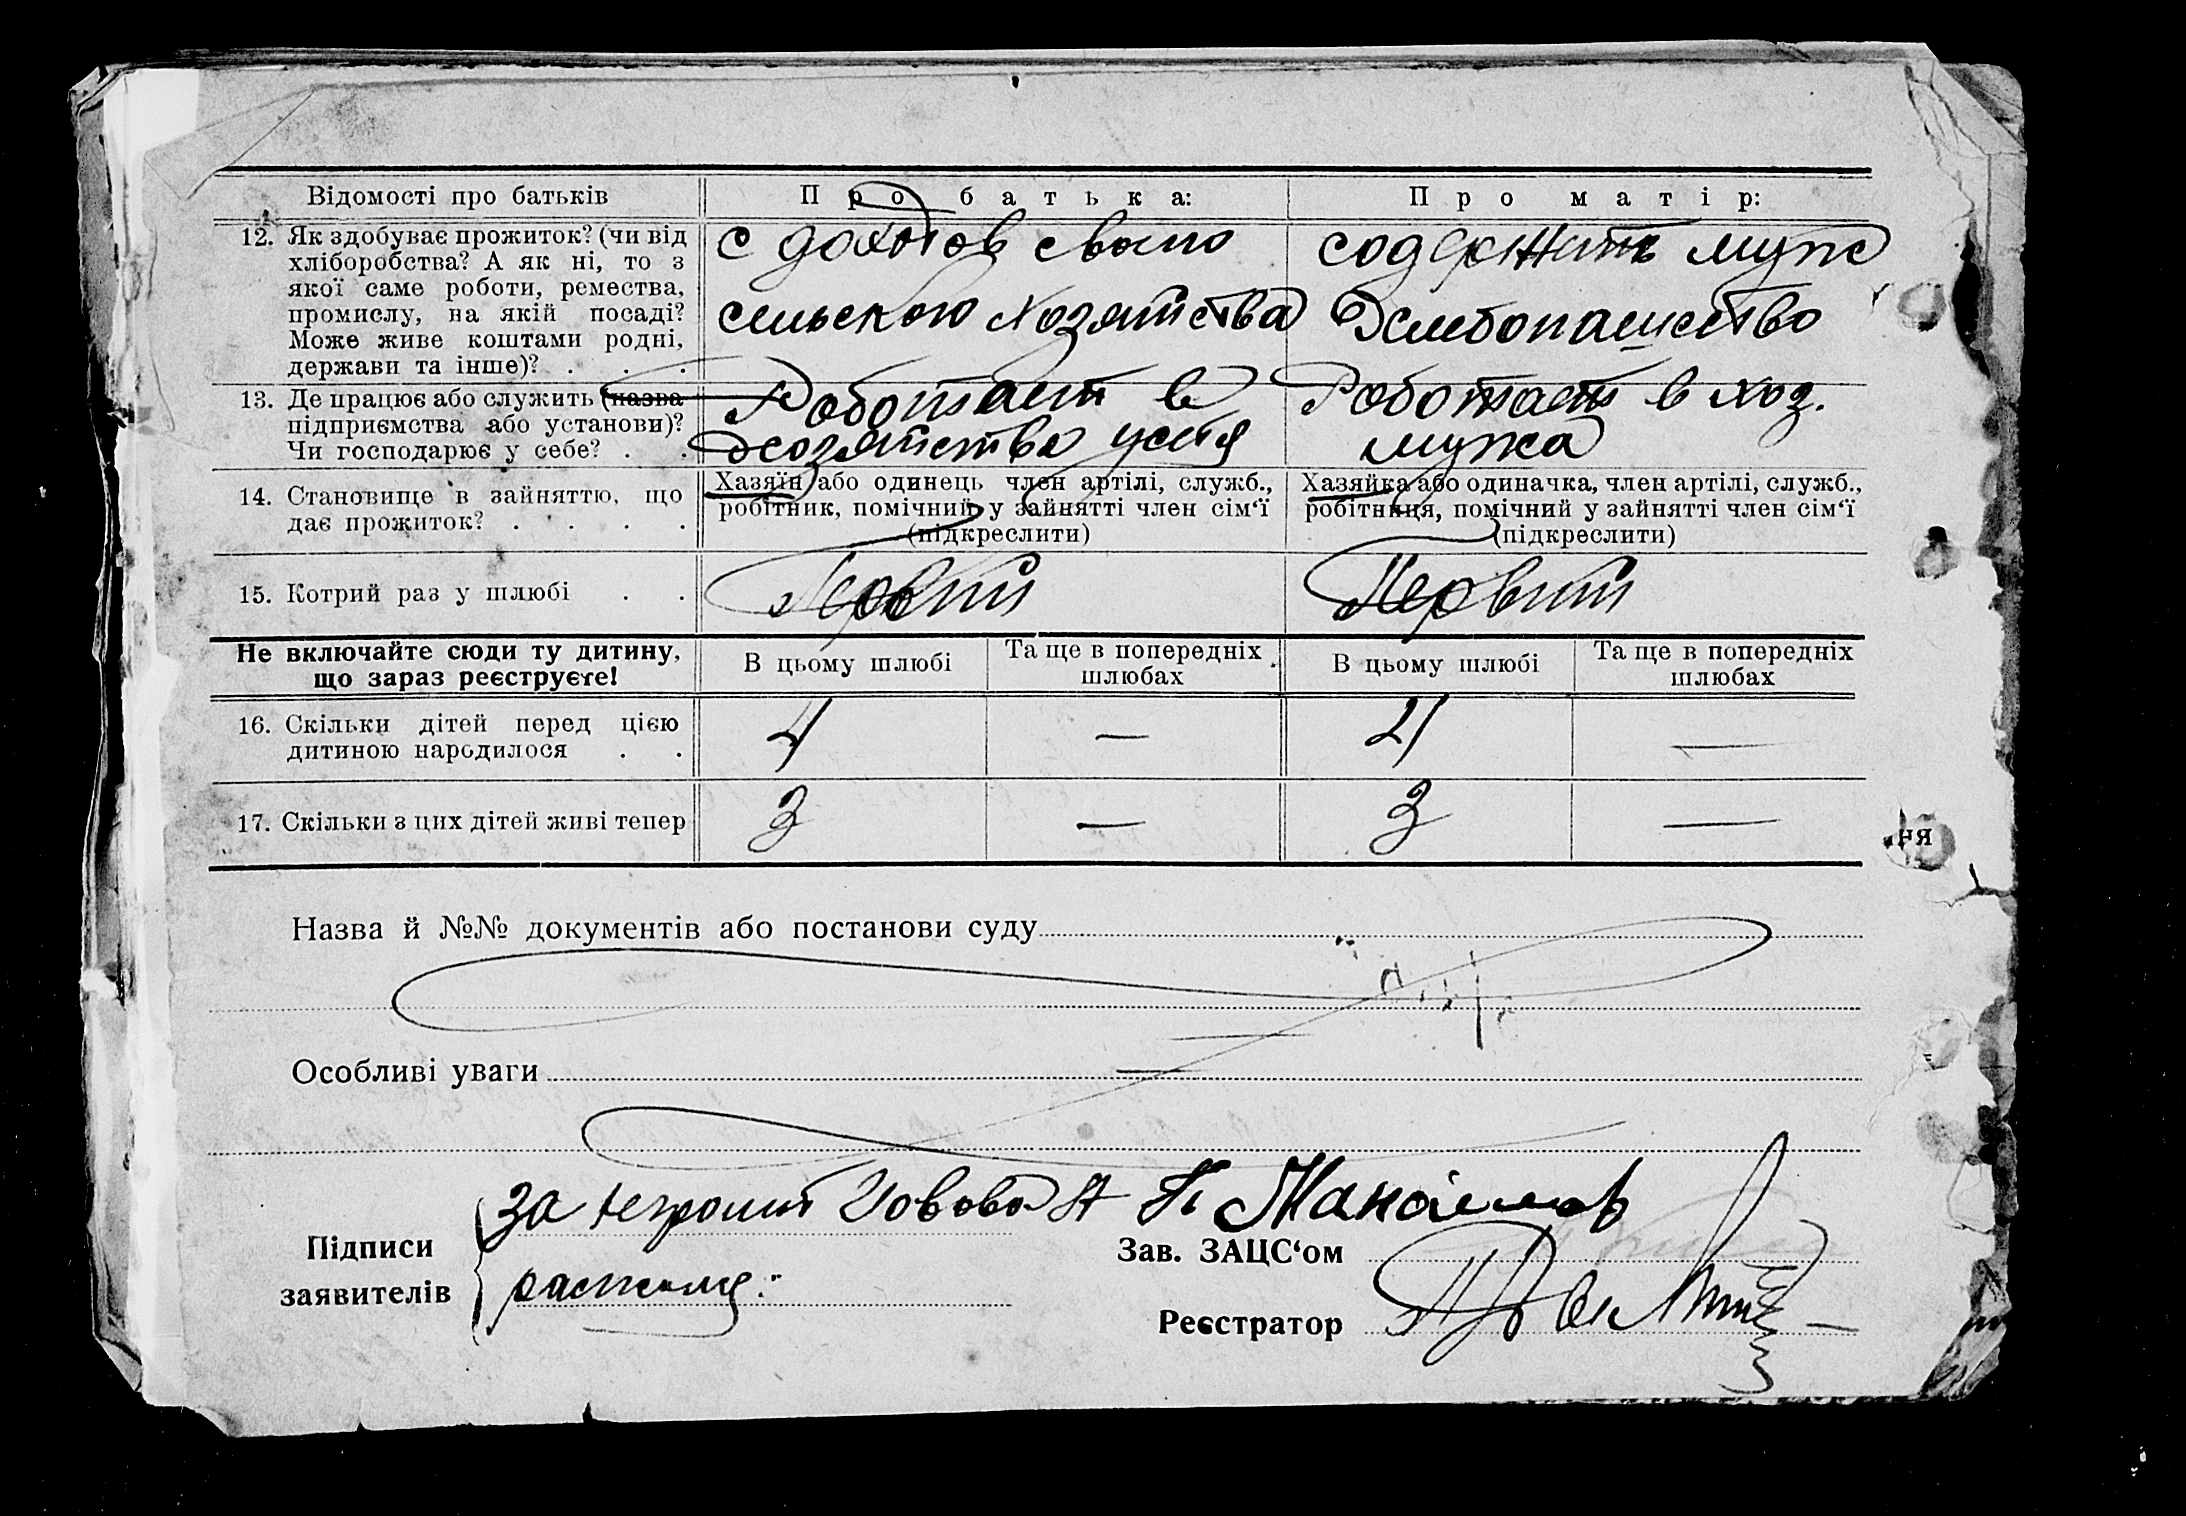 Відомості про батьків
Про батька:
Про матір:
12. Як здобуває прожиток? (чи від
хліборобства? А як ні, то з
якої саме роботи, ремества,
промислу, на якій посаді?
Може живе коштами родні,
держави та інше)? . . .
с доходов своего
сельского хозяйства
содержить муж
Хлебопашество
13. Де працює або служить (назва
підприємства або установи)?
Чи господарює у себе? . .
Роботает в
хозяйства усебя
Роботает в хоз.
мужа
14. Становище в зайняттю, що
дає прожиток? . . . .
Хазяїн або одинець член артілі, служб.,
робітник, помічний у зайнятті член сім‘ї
(підкреслити)
Хазяйка або одиначка, член артілі, служб.,
робітниця, помічний у зайнятті член сім‘ї
(підкреслити)
15. Котрий раз у шлюбі . .
Первий
Первий
Не включайте сюди ту дитину,
що зараз реєструєте!
В цьому шлюбі
Та ще в попередніх
шлюбах
В цьому шлюбі
Та ще в попередніх
шлюбах
16. Скільки дітей перед цією
дитиною народилося . .
4 — 4 —
17. Скільки з цих дітей живі тепер
3 — 3 —
ня
Назва й №№ документів або постанови суду
Особливі уваги
Підписи
заявителів
за
Зав. ЗАЦС‘ом
Реєстратор